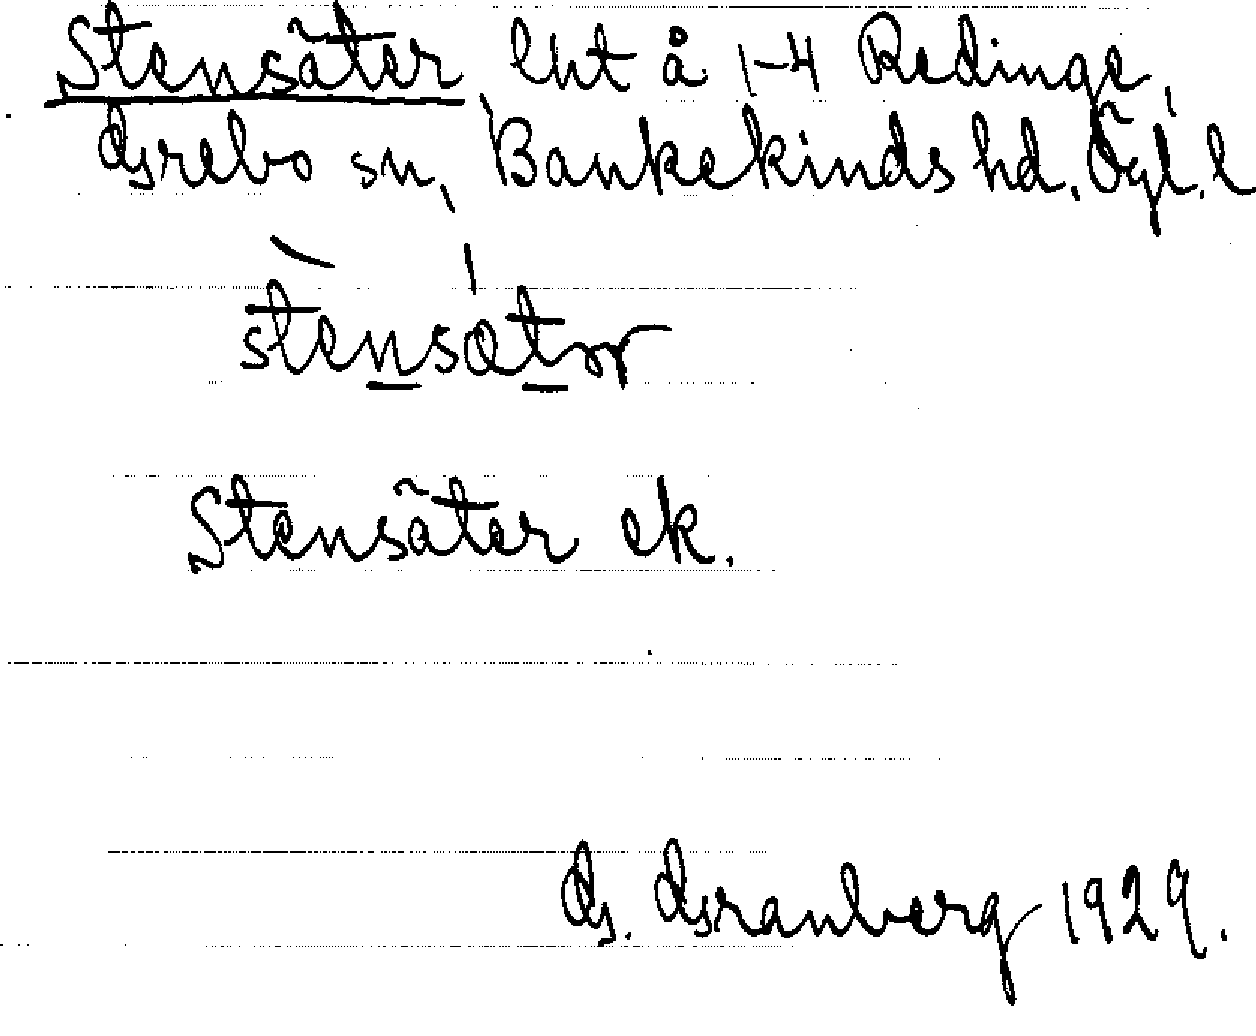 Stensäter lht å 1-4 Redinge,
Grebo sn, Bankekinds hd. Ögl. l
stensätər
Stensäter ek.
G. Granberg 1929.